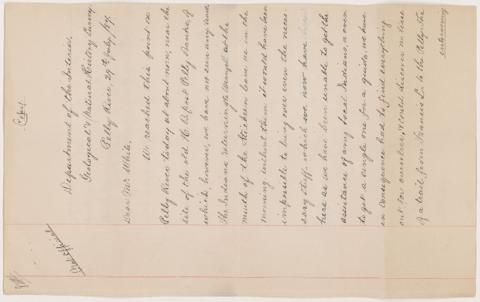 Copy.
Department of the Interior,
Geological & Natural History Survey
Pelly River, 29th July, 1887.
Dear Mr. White,
We reached this point on
Pelly River today at about noon, near the
site of the old H. B. post Pelly Banks, of
which, however, we have not seen any
The Indians at the
mouth of the Stickeen leave us in the
morning without them it would have been
impossible to bring over even the neces-
sary stuff which we now have
here as we have been unable to get the
assistance of any local Indians, or even
to get a single one for a guide, we have
in consequence had to find everything
out for ourselves, & could discover no trace
of a trail from Frances L. to the Pelly. The
Unofficial